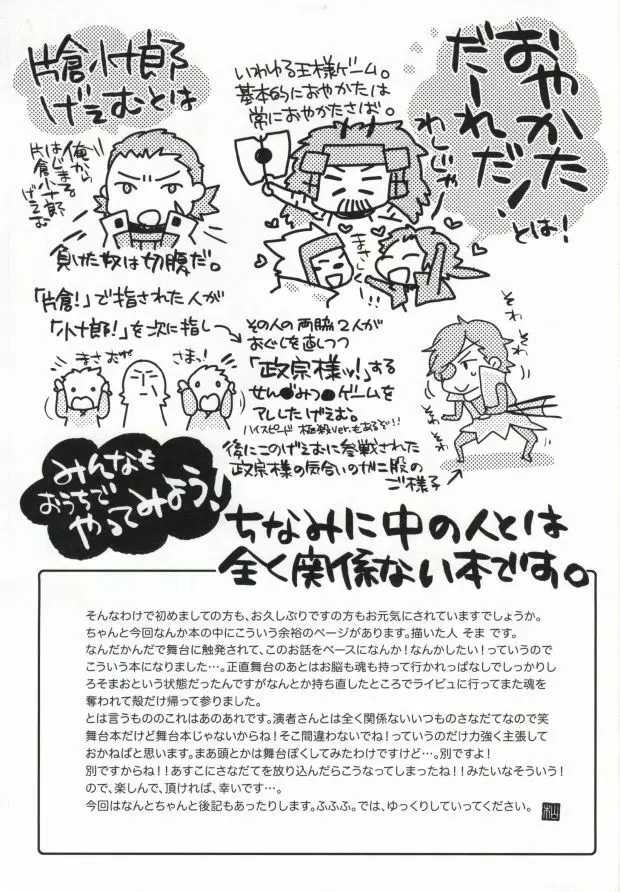 おやかた
だーれだ!
とは!
わしじゃー
いわゆる王様ゲーム。
基本的におやかたは
常におやかたさば。
まさむく!!
片倉小十郎
げえむとは
俺から
はじまる
片倉小十郎
げえむ
負けた奴は切腹だ。
「片倉!」で指された人が
「小十郎!」を次に指し
その人の両脇2人が
おぐしを直しつつ
「政宗様ッ!」する
せん●みつ●ゲームを
アレしたげえむ。
ハイスピード極殺ver.もあるぞ!!
まさむね
さまっ!
そわ
そわ
そわ
そわ
後にこのげえむに参戦された
政宗様の気合いのガニ股の
ご様子
みんなも
おうちで
やってみよう!
ちなみに中の人とは
全く関係ない本です。
そんなわけで初めましての方も、お久しぶりですの方もお元気にされていますでしょうか。
ちゃんと今回なんか本の中にこういう余裕のページがあります。描いた人 そま です。
なんだかんだで舞台に触発されて、このお話をベースになんか!なんかしたい!っていうので
こういう本になりました…。正直舞台のあとはお脳も魂も持って行かれっぱなしでしっかりし
ろそまおという状態だったんですがなんとか持ち直したところでライビュに行ってまた魂を
奪われて殻だけ帰って参りました。
とは言うもののこれはあのあれです。演者さんとは全く関係ないいつものさなだてなので笑
舞台本だけど舞台本じゃないからね!そこ間違わないでね!っていうのだけ力強く主張して
おかねばと思います。まあ頭とかは舞台ぽくしてみたわけですけど…。別ですよ!
別ですからね!!あすこにさなだてを放り込んだらこうなってしまったね!!みたいなそういう!
ので、楽しんで、頂ければ、幸いです…。
今回はなんとちゃんと後記もあったりします。ふふふ。では、ゆっくりしていってください。